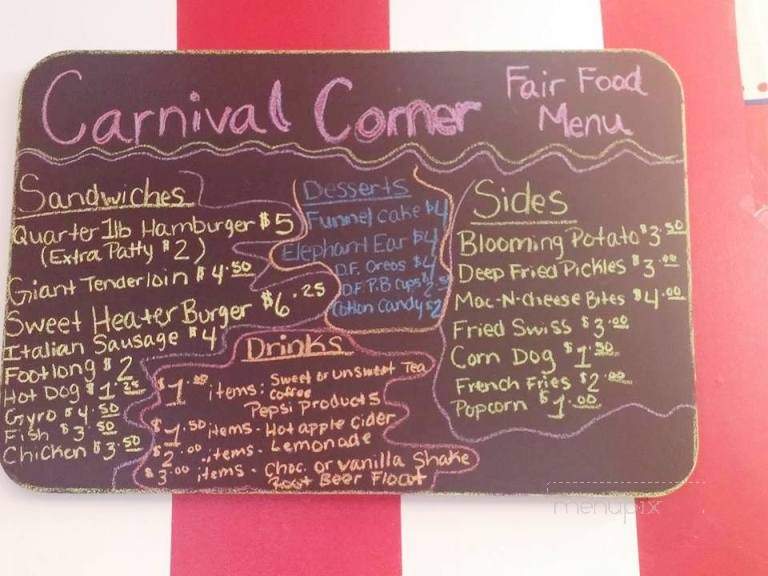 Carnival Corner
Fair Food
Menu
Sandwiches
Quarter 1lb Hamburger $5
(Extra Patty $2)
Giant Tenderloin $4.50
Sweet Heater Burger $6.25
Italian Sausage $4
Footlong $2
Hot Dog $1.25
Gyro $4.50
Fish $3.50
Chicken $3.50
Desserts
Funnel cake $4
Elephant Ear $4
D.F. Oreos $4
D.F. P.B Cups
Cotton Candy $2
Drinks
$1.00 items: Sweet or Unsweet Tea
Coffee
Pepsi Products
$1.50 items - Hot apple cider
$2.00 items - Lemonade
$3.00 items - Choc. or vanilla Shake
Root Beer Float
Sides
Blooming Potato $3.50
Deep Fried Pickles $3.00
Mac-N-Cheese Bites $4.00
Fried Swiss $3.00
Corn Dog $1.50
French Fries $2.00
Popcorn $1.00
menupix